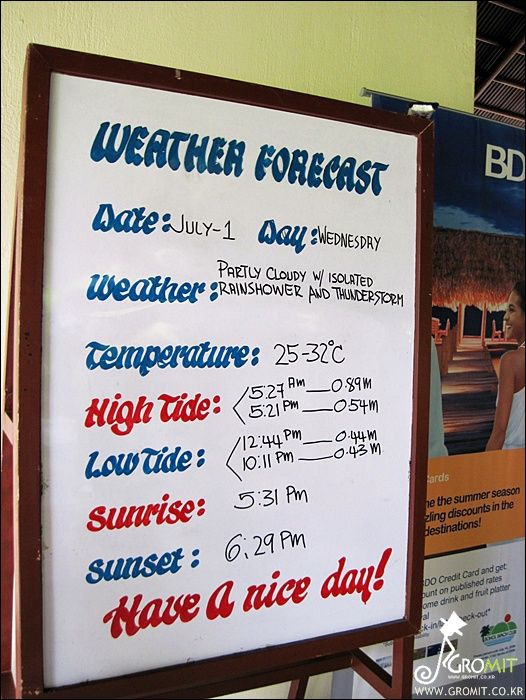 WEATHER FORECAST
Date: JULY-1 Day: WEDNESDRY
Weather: PARTLY CLOUDY W/ ISOLATED
RAINSHOWER AND THUNDERSTORM
Temperature: 25-32°C
High Tide: 5:27 Am — 0.89M
5:21 Pm — 0.54M
Low Tide: 12:44 Pm — 0.44M
10:11 Pm — 0.43M
Sunrise: 5:31 Pm
Sunset: 6:29 Pm
Have A nice day!
BD
ards
he the summer season
zling discounts in the
destinations!
BDO Credit Card and get:
ount on published rates
ome drink and fruit platter
k-in/ eck-out*
GROMIT
WWW.GROMIT.CO.KR
WWW.GROMIT.CO.KR